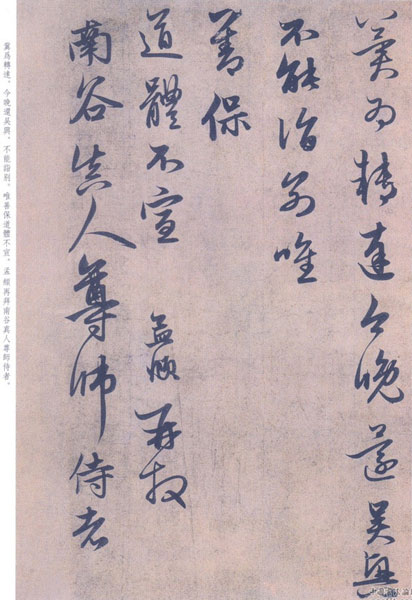 冀为轉達今晚還吳興
不能詣别唯
善保
道體不宣 孟頫再拜
南谷真人尊師侍者
冀爲轉達。今晚還吳興，不能詣别。唯善保道體不宣。孟頫再拜南谷真人尊師侍者。